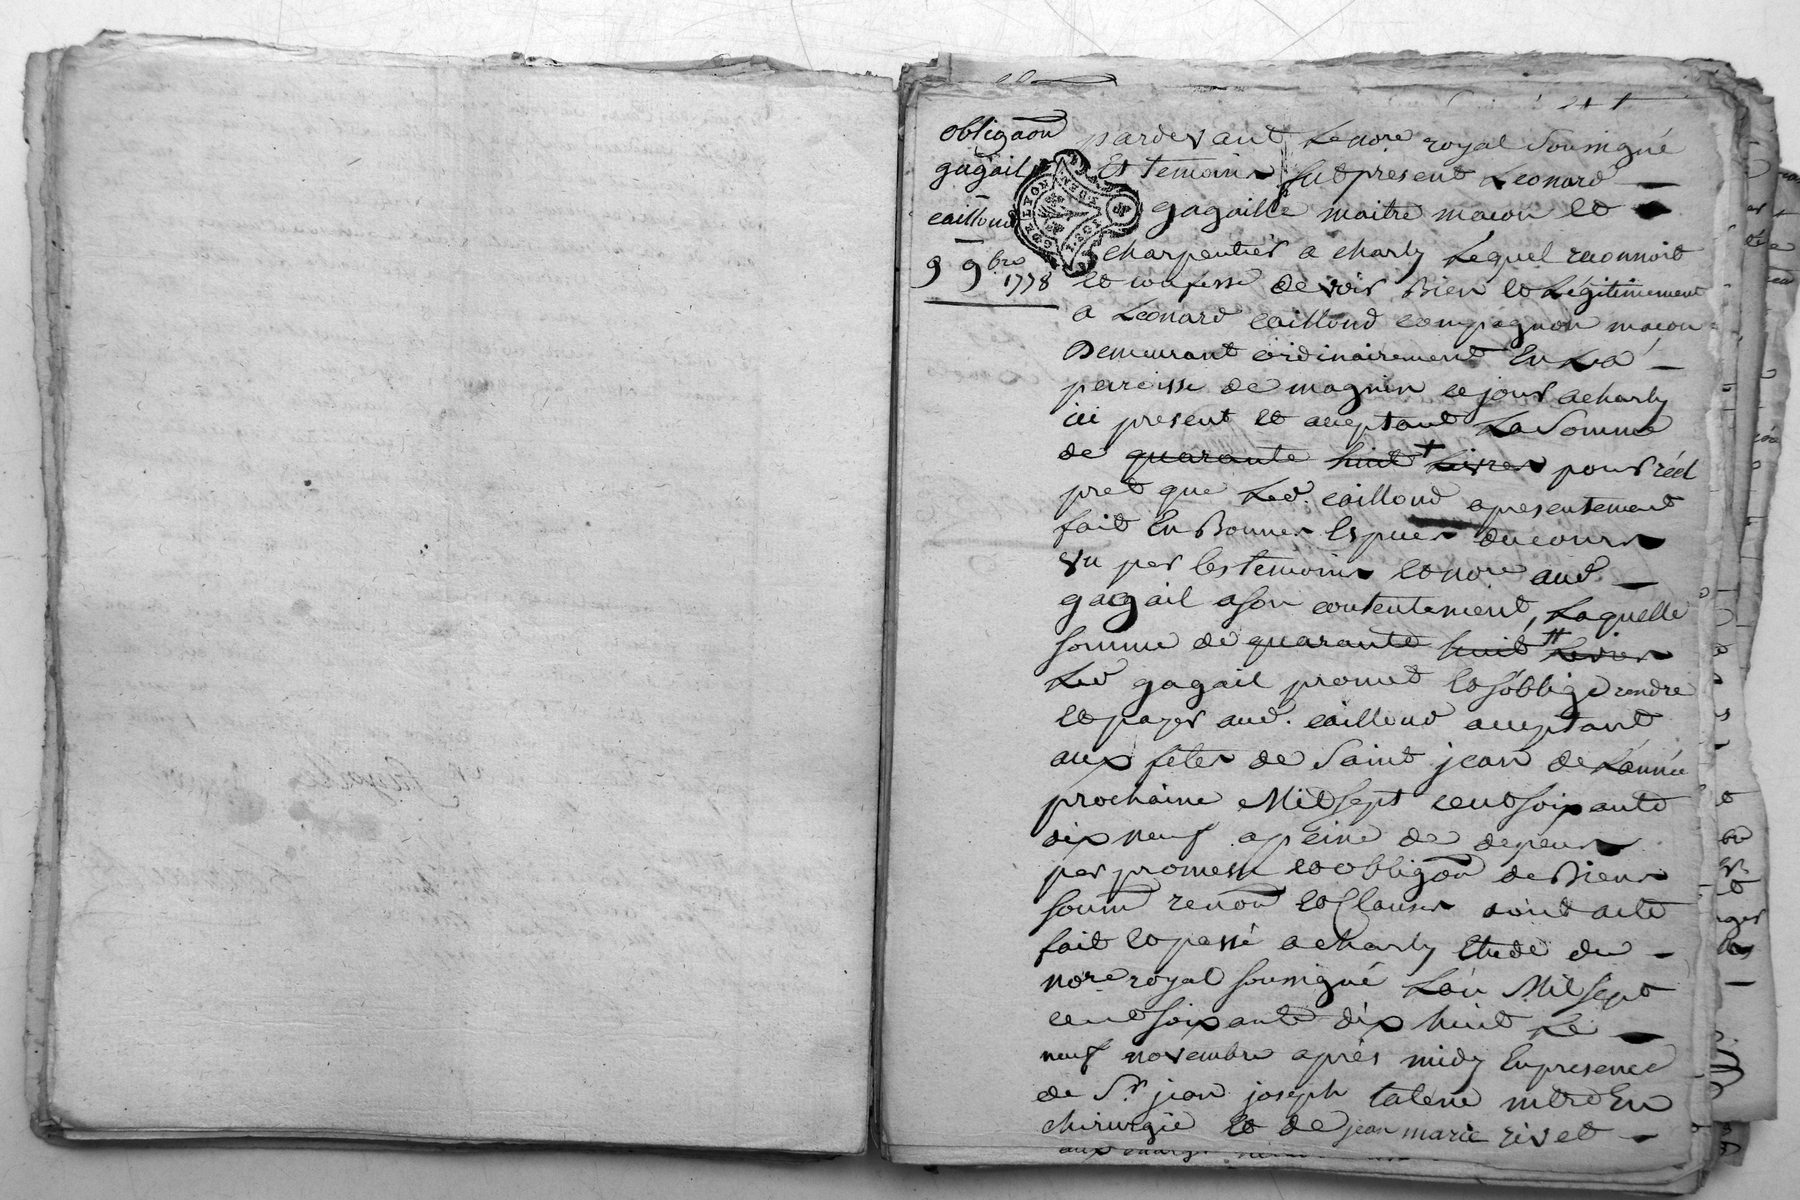 241
obligaon
gagail
cailloud
9 9bre
1778
pardevant Le nore royal Soussigné
Et temoins fut present Leonard
gagaille maitre macon et
charpentier a charly Lequel reconnoit
et confesse devoir Bien et Légitimement
a Léonard cailloud compagnon macon
Demeurant ordinairement En La
paroisse de magnin ce jour a charly
ici present et acceptant La Somme
de quarante huit Livres pour réel
pret que Led. cailloud a presentement
fait En Bonnes Espces du cours
vu par les temoins et nore aud.
gagail a son contentement, Laquelle
somme de quarante huit Livres
Led gagail promet et s'oblige rendre
et payer aud. cailloud acceptant
aux fêtes de Saint jean de L'année
prochaine Mil Sept cent soixante
dix neuf a peine de depens
par promesse et obligaon de Biens
soumn renonn et Clauses dont acte
fait et passé a charly Etude du
nore royal soussigné L'an Mil Sept
cent soixante dix huit Le
neuf novembre après midy En presence
de Sr. jean joseph mtre En
chirurgie Et de jean marie rivet